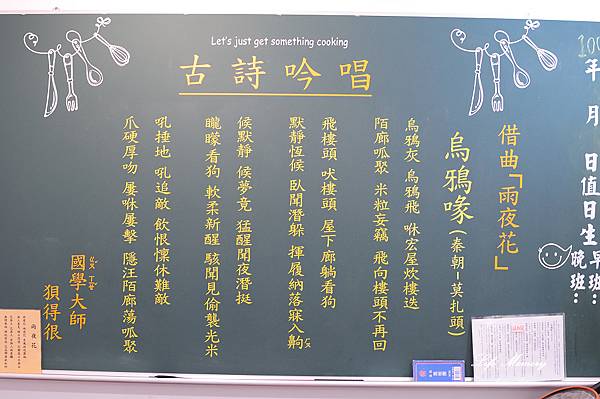 Let's just get something cooking
古詩吟唱
借曲「雨夜花」
烏鴉喙(秦朝-莫扎頭)
烏鴉灰 烏鴉飛 咻宏屋炊樓迭
陌廊呱聚 米粒妄竊 飛向樓頭不再回
飛樓頭 吠樓頭 屋下廊躺看狗
默靜恆候 臥聞潛躲 揮履納落寐入齁ㄍㄡ
候默靜 候夢竟 猛醒聞夜潛挺
矇矇看狗 軟柔新醒 駭聞見偷襲光米
吼捶地 吼追敵 飲恨懍休難敵
爪硬厚吻 屢咻屢擊 隱汪陌廊蕩呱聚
國學大師
狽得很
年 月 日值日生
早班:
晚班:
雨夜花